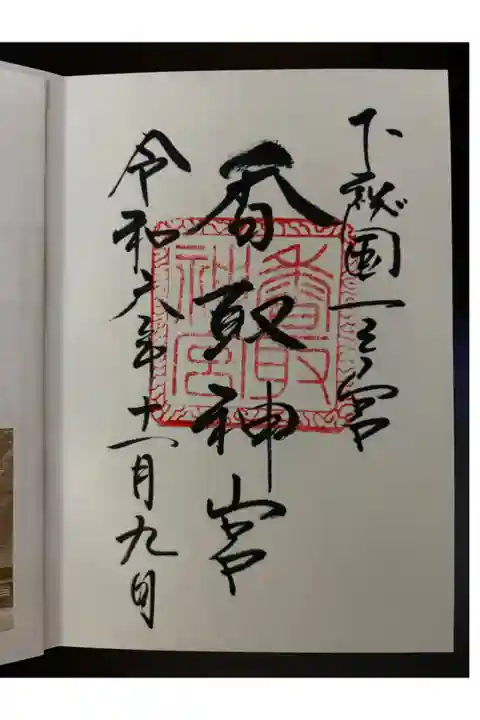 下総国一之宮
香取神宮
香取
神宮
令和六年十一月九日